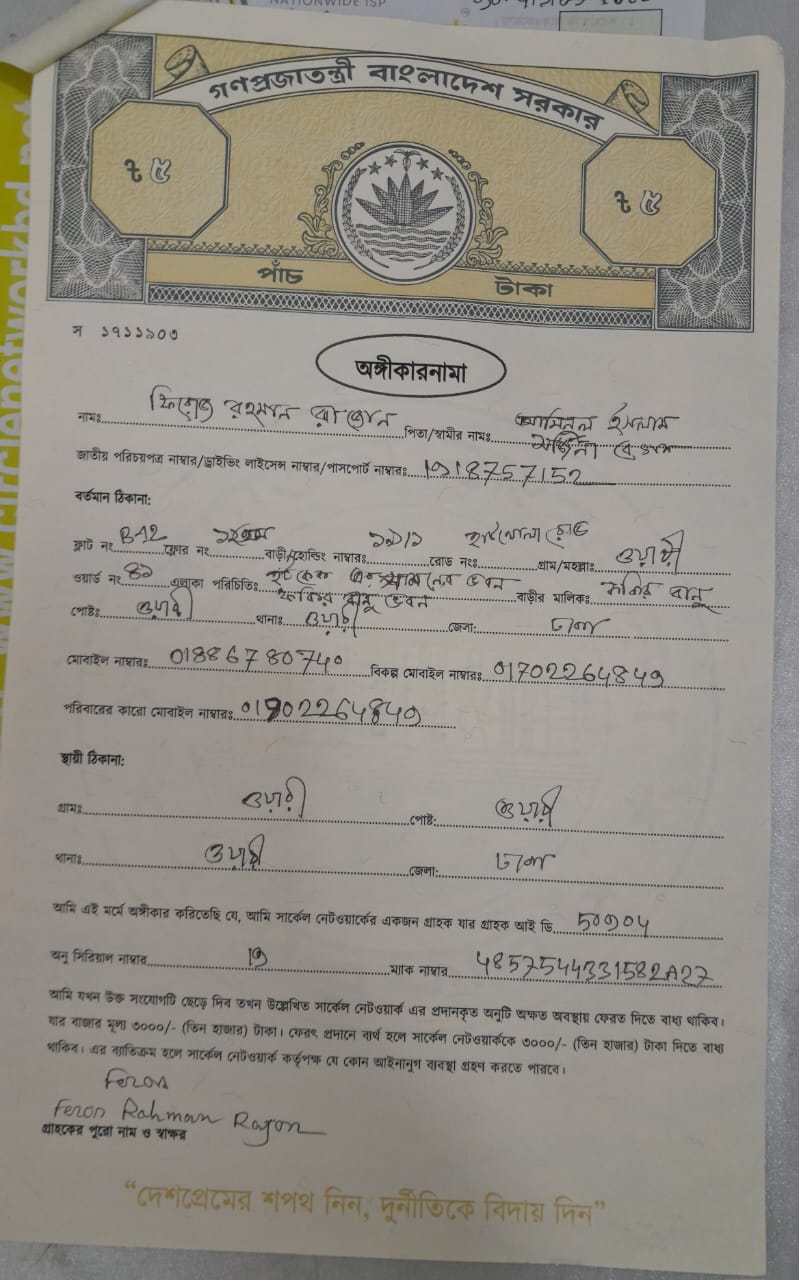 NATIONWIDE ISP
গণপ্রজাতন্ত্রী বাংলাদেশ সরকার
৳ ৫
৳ ৫
পাঁচ টাকা
স ১৭১১৯০৩
অঙ্গীকারনামা
নামঃ ফিরোজ রহমান রাজোন পিতা/স্বামীর নামঃ আমিনুল ইসলাম
জাতীয় পরিচয়পত্র নাম্বার/ড্রাইভিং লাইসেন্স নাম্বার/পাসপোর্ট নাম্বারঃ 1918757152
বর্তমান ঠিকানা:
ফ্লাট নং B-12 ফ্লোর নং বাড়ী/হোল্ডিং নাম্বারঃ ১৯/১ রোড নংঃ গ্রাম/মহল্লাঃ ওয়ারী
ওয়ার্ড নং এলাকা পরিচিতিঃ ভবন বাড়ীর মালিকঃ বানু
পোষ্টঃ ওয়ারী থানাঃ ওয়ারী জেলা: ঢাকা
মোবাইল নাম্বারঃ 01886780740 বিকল্প মোবাইল নাম্বারঃ 01702264849
পরিবারের কারো মোবাইল নাম্বারঃ 01702264849
স্থায়ী ঠিকানা:
গ্রামঃ ওয়ারী পোষ্ট: ওয়ারী
থানাঃ ওয়ারী জেলা: ঢাকা
আমি এই মর্মে অঙ্গীকার করিতেছি যে, আমি সার্কেল নেটওয়ার্কের একজন গ্রাহক যার গ্রাহক আই ডি 50904
অনু সিরিয়াল নাম্বার 19 ম্যাক নাম্বার 4857544331582A27
আমি যখন উক্ত সংযোগটি ছেড়ে দিব তখন উল্লেখিত সার্কেল নেটওয়ার্ক এর প্রদানকৃত অনুটি অক্ষত অবস্থায় ফেরত দিতে বাধ্য থাকিব।
যার বাজার মূল্য ৩০০০/- (তিন হাজার) টাকা। ফেরৎ প্রদানে ব্যর্থ হলে সার্কেল নেটওয়ার্ককে ৩০০০/- (তিন হাজার) টাকা দিতে বাধ্য
থাকিব। এর ব্যতিক্রম হলে সার্কেল নেটওয়ার্ক কর্তৃপক্ষ যে কোন আইনানুগ ব্যবস্থা গ্রহণ করতে পারবে।
Feron
Feron Rahman Rajon
গ্রাহকের পুরো নাম ও স্বাক্ষর
“দেশপ্রেমের শপথ নিন, দুর্নীতিকে বিদায় দিন”
www.circlenetworkbd.net